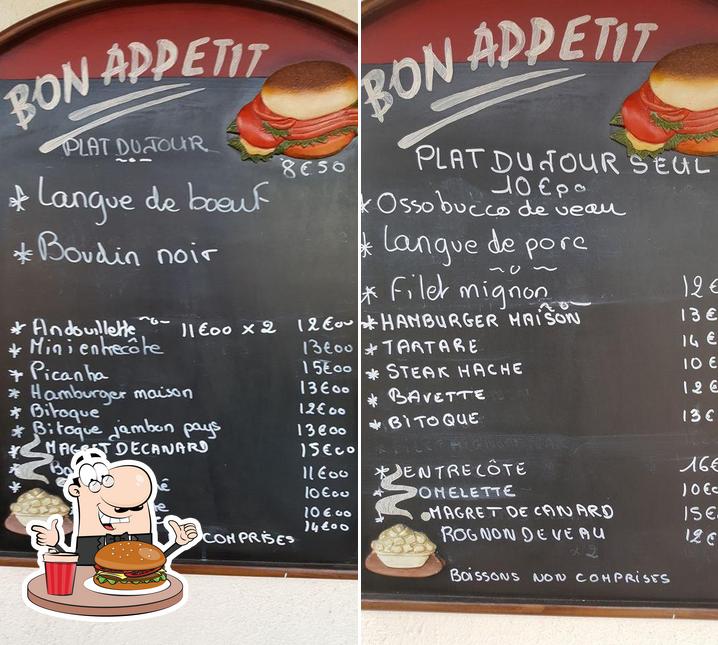 BON APPETIT
PLAT DU JOUR
8€50
* Langue de boeuf
* Boudin noir
* Andouillette 11€00 x 2 12€00
* Mini entrecôte 13€00
* Picanha 15€00
* Hamburger maison 13€00
* Bitoque 12€00
* Bitoque jambon pays 13€00
* MAGRET DE CANARD 15€00
11€00
10€00
10€00
14€00
COMPRISES
BON APPETIT
PLAT DU JOUR SEUL
10€00
* Ossobucco de veau
* Langue de porc
* Filet mignon 12€
* HAMBURGER MAISON 13€
* TARTARE 14€
* STEAK HACHE 10€
* BAVETTE 12€
* BITOQUE 13€
* ENTRECÔTE 16€
OMELETTE 10€0
MAGRET DE CANARD 15€
ROGNON DE VEAU 12€
x 2
BOISSONS NON COMPRISES